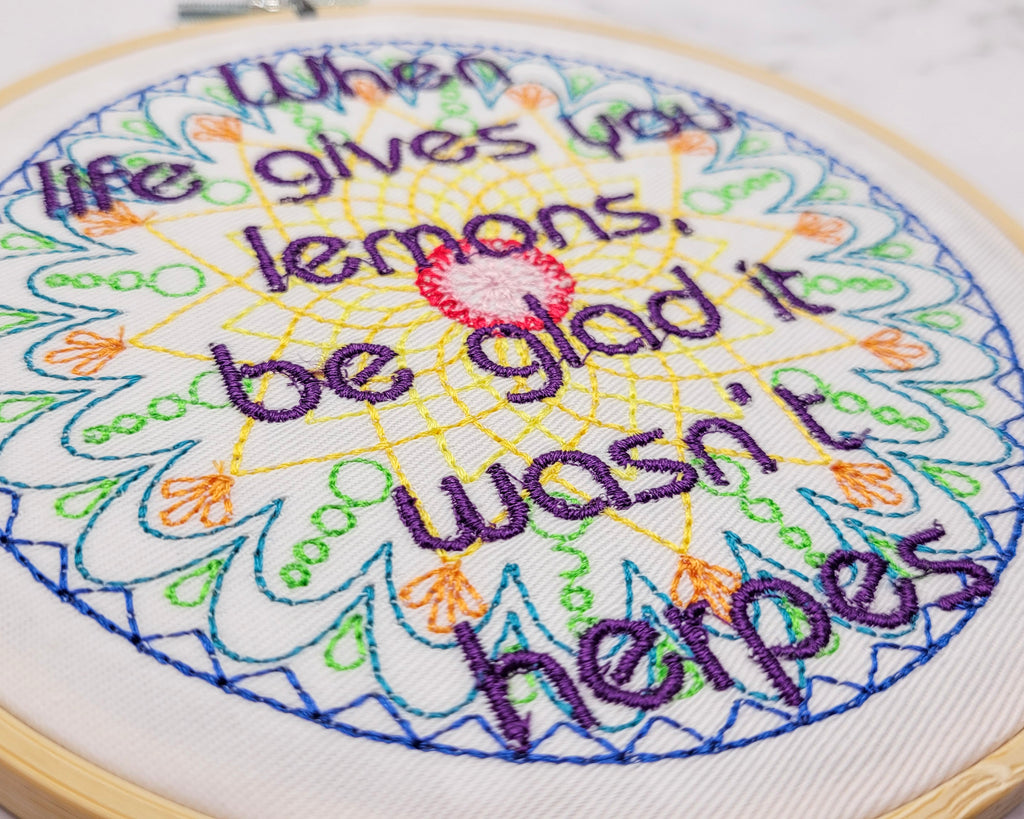 When
life gives you
lemons,
be glad it
wasn't
herpes